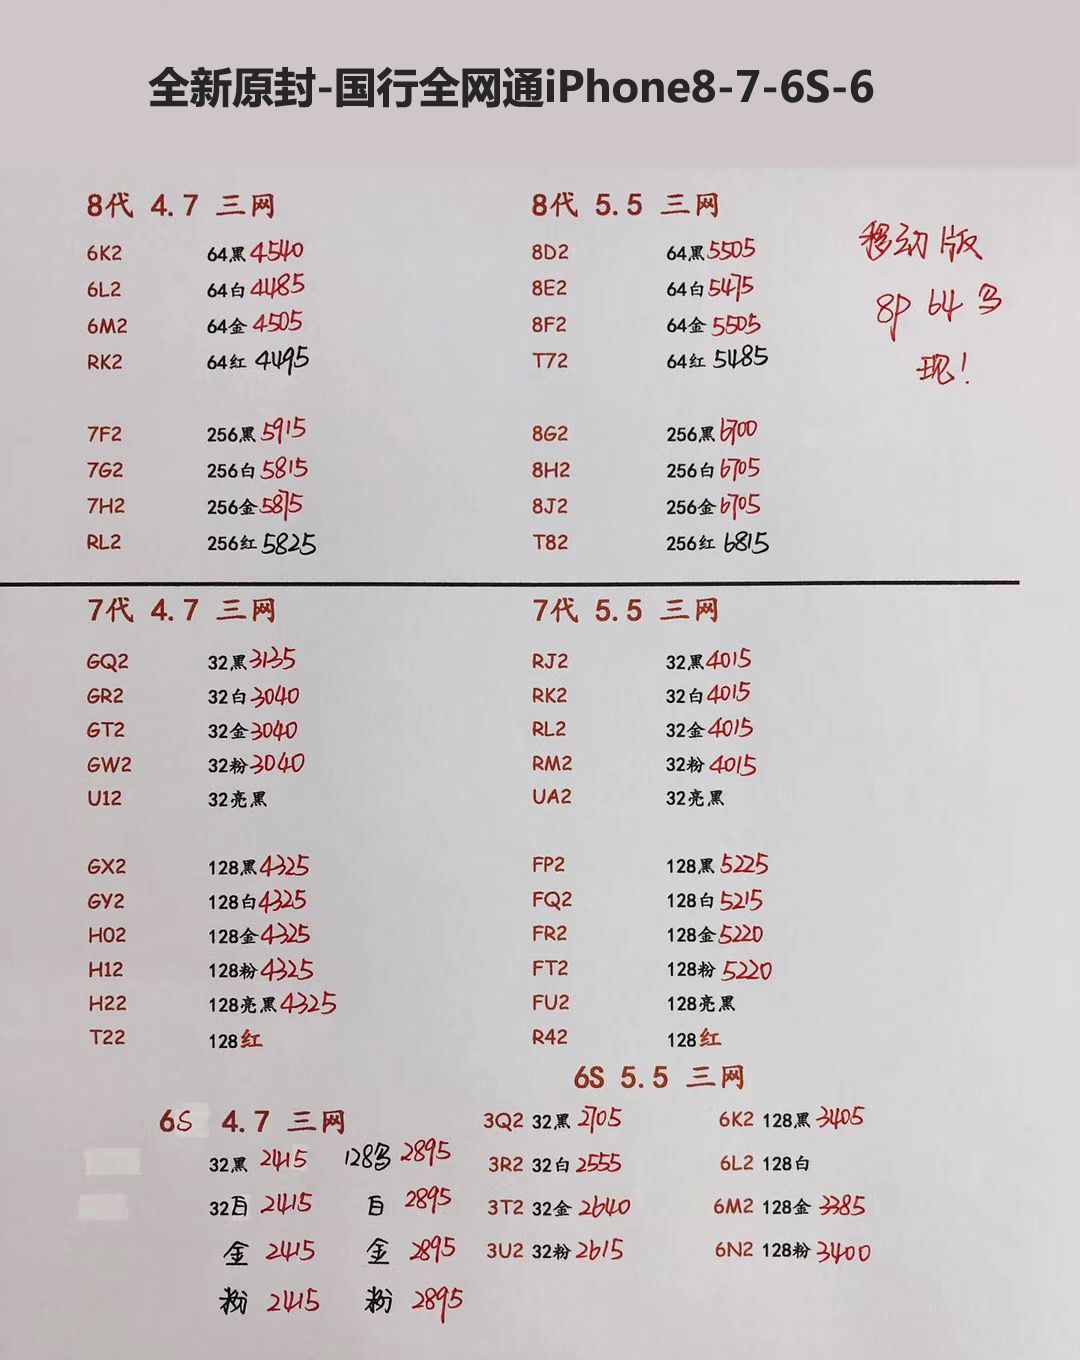 全新原封-国行全网通iPhone8-7-6S-6
8代 4.7 三网
6K2 64黑 4540
6L2 64白 4485
6M2 64金 4505
RK2 64红 4495
7F2 256黑 5915
7G2 256白 5815
7H2 256金 5875
RL2 256红 5825
8代 5.5 三网
8D2 64黑 5505
8E2 64白 5475
8F2 64金 5505
T72 64红 5485
8G2 256黑 6700
8H2 256白 6705
8J2 256金 6705
T82 256红 6815
移动版
8P 64
现!
7代 4.7 三网
GQ2 32黑 3135
GR2 32白 3040
GT2 32金 3040
GW2 32粉 3040
U12 32亮黑
GX2 128黑 4325
GY2 128白 4325
H02 128金 4325
H12 128粉 4325
H22 128亮黑 4325
T22 128红
7代 5.5 三网
RJ2 32黑 4015
RK2 32白 4015
RL2 32金 4015
RM2 32粉 4015
UA2 32亮黑
FP2 128黑 5225
FQ2 128白 5215
FR2 128金 5220
FT2 128粉 5220
FU2 128亮黑
R42 128红
6S 4.7 三网
32黑 2415 128 2895
32白 2415 白 2895
金 2415 金 2895
粉 2415 粉 2895
6S 5.5 三网
3Q2 32黑 2705 6K2 128黑 3405
3R2 32白 2555 6L2 128白
3T2 32金 2640 6M2 128金 3385
3U2 32粉 2615 6N2 128粉 3400